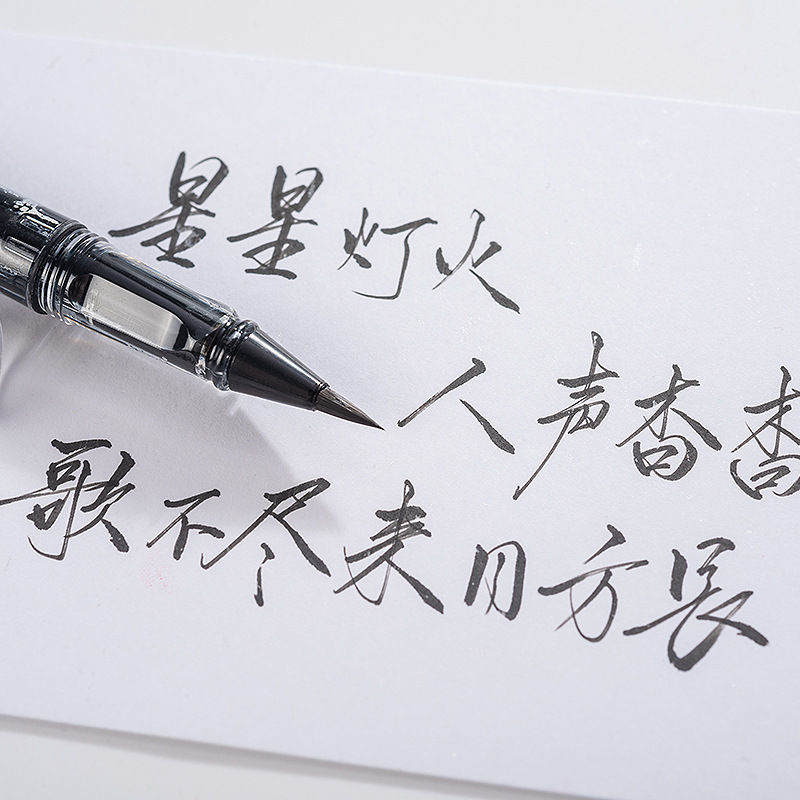 星星灯火
人声杳杳
歌不尽来日方長